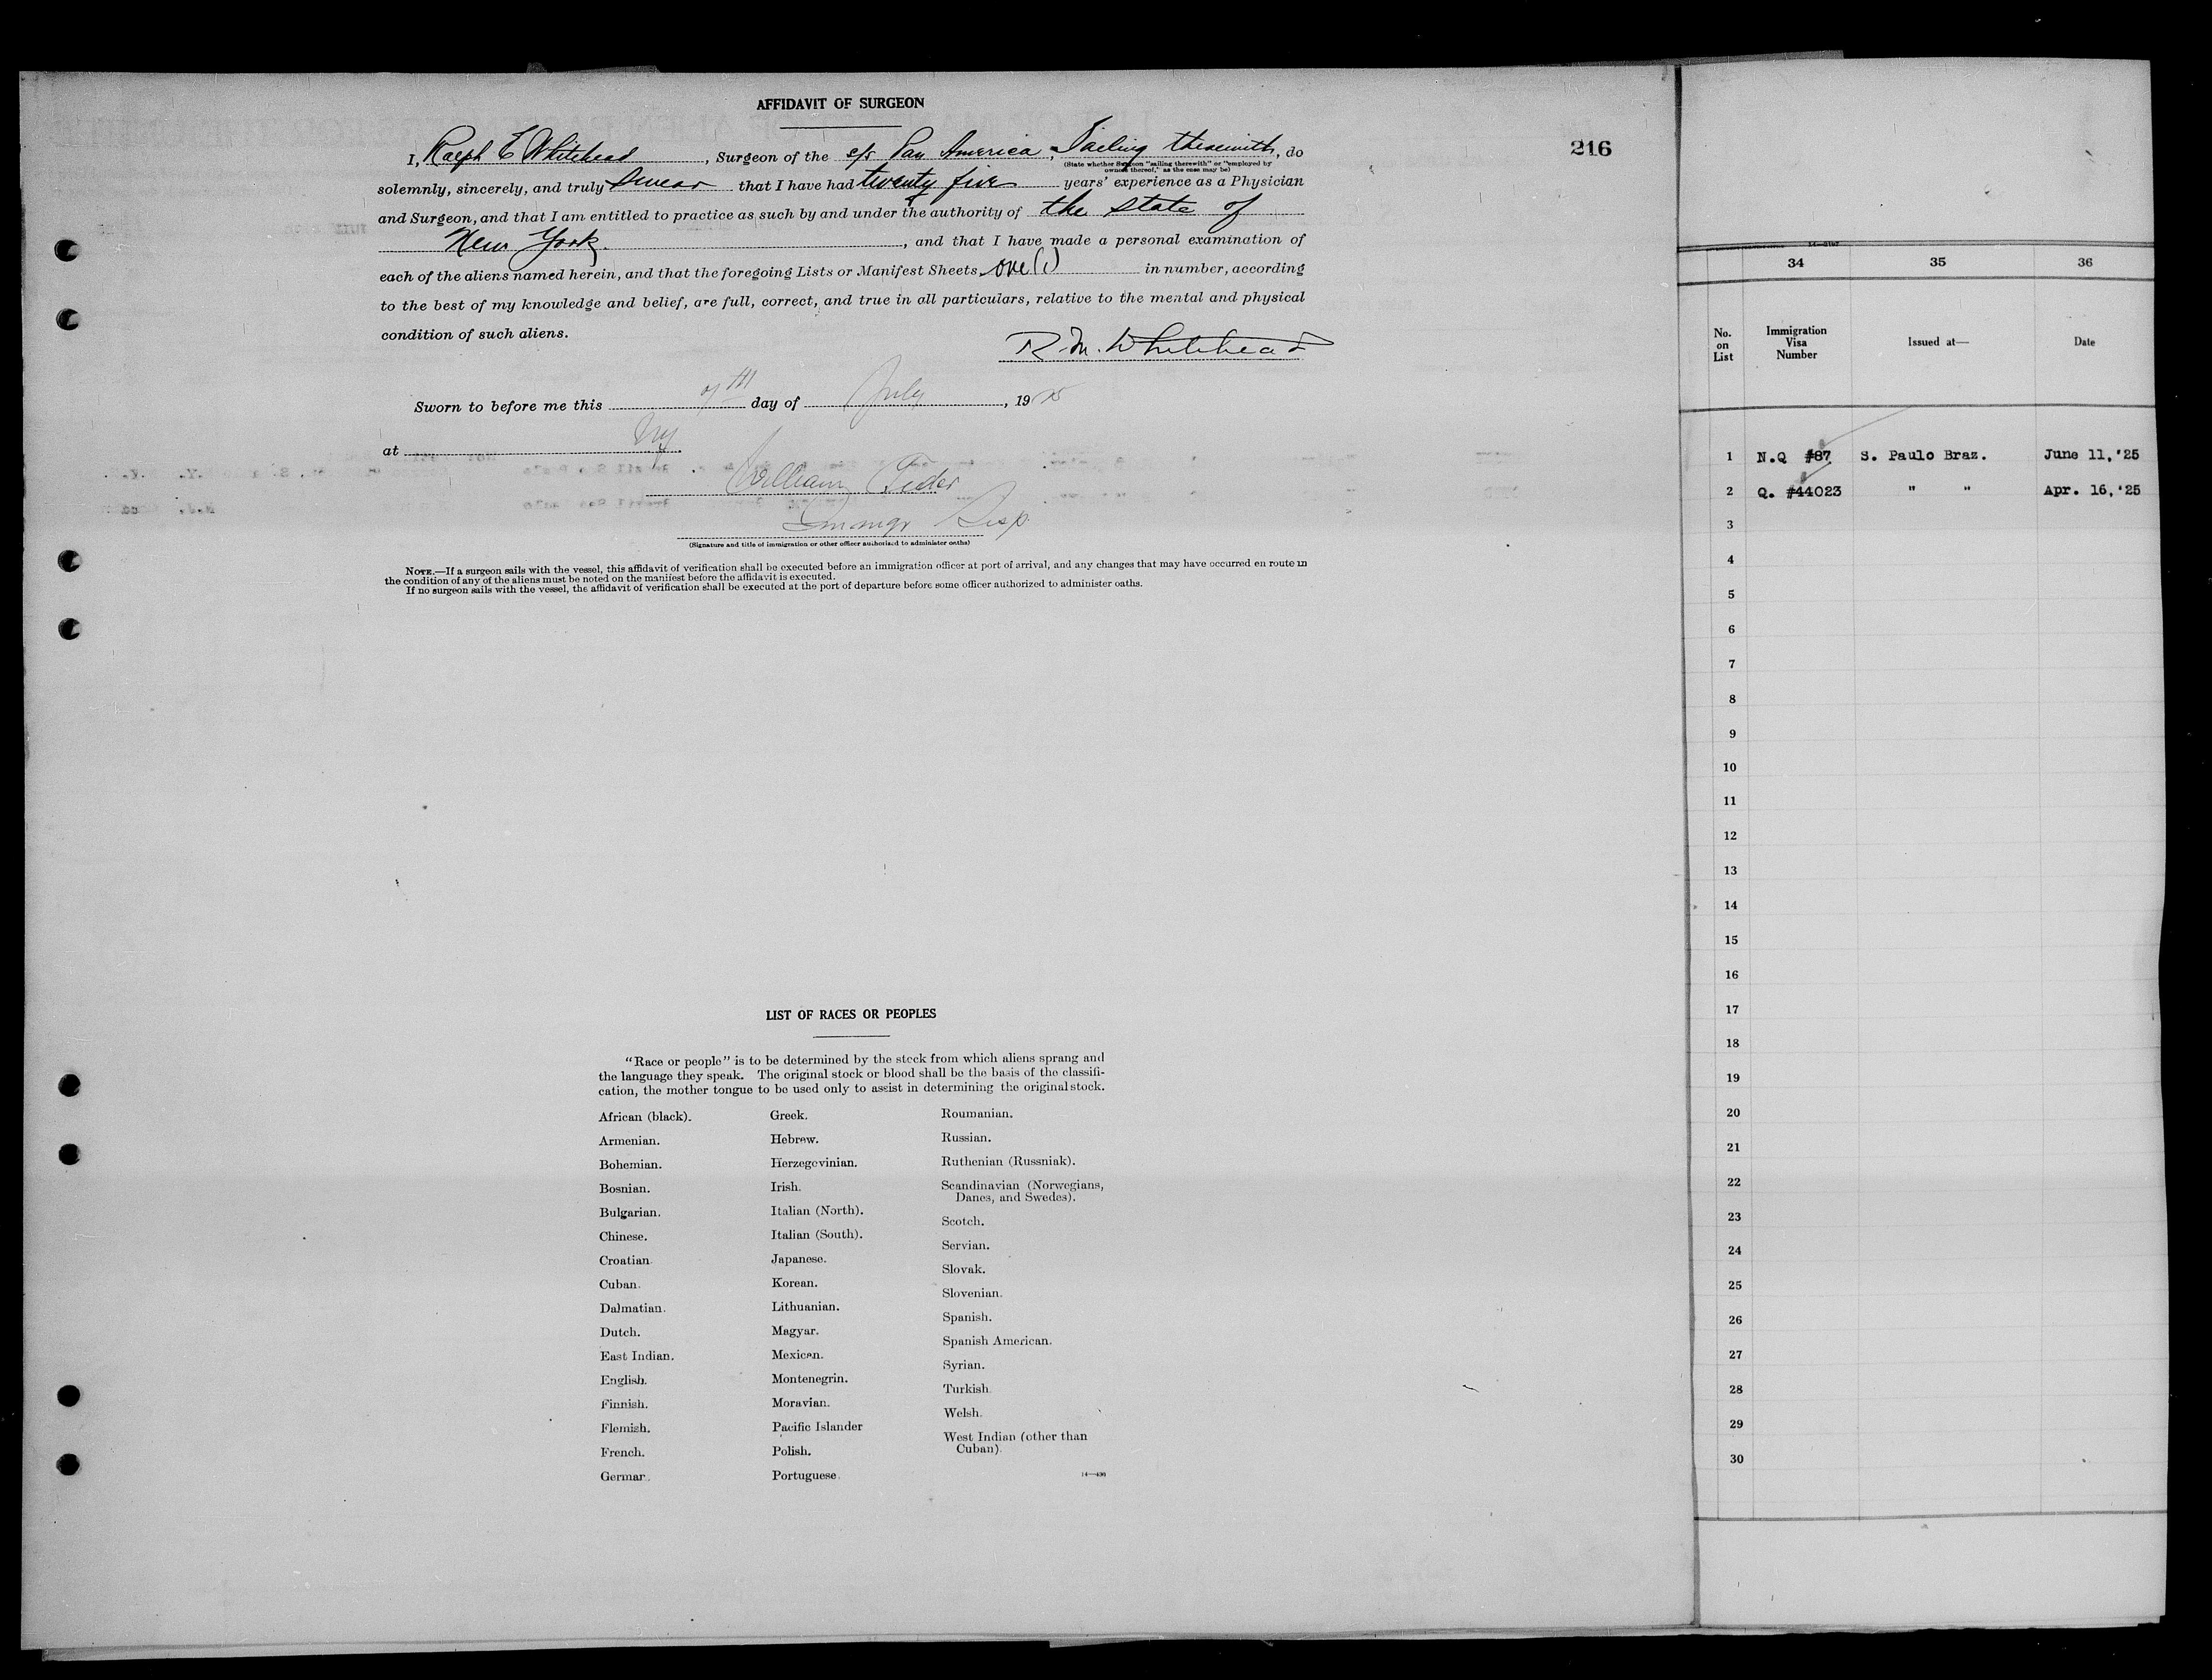 AFFIDAVIT OF SURGEON
216
I, Ralph E Whitehead, Surgeon of the s/s Pan America, Sailing therewith, do
(State whether Surgeon "sailing therewith" or "employed by
owners thereof," as the case may be)
solemnly, sincerely, and truly swear that I have had twenty five years' experience as a Physician
and Surgeon, and that I am entitled to practice as such by and under the authority of the state of
New York, and that I have made a personal examination of
each of the aliens named herein, and that the foregoing Lists or Manifest Sheets, one (1) in number, according
to the best of my knowledge and belief, are full, correct, and true in all particulars, relative to the mental and physical
condition of such aliens.
R. M. Whitehead
Sworn to before me this 7TH day of July, 1925
at NY
William
(Signature and title of immigration or other officer authorized to administer oaths)
NOTE.—If a surgeon sails with the vessel, this affidavit of verification shall be executed before an immigration officer at port of arrival, and any changes that may have occurred en route in
the condition of any of the aliens must be noted on the manifest before the affidavit is executed.
If no surgeon sails with the vessel, the affidavit of verification shall be executed at the port of departure before some officer authorized to administer oaths.
LIST OF RACES OR PEOPLES
"Race or people" is to be determined by the stock from which aliens sprang and
the language they speak. The original stock or blood shall be the basis of the classifi-
cation, the mother tongue to be used only to assist in determining the original stock.
African (black).
Armenian.
Bohemian.
Bosnian.
Bulgarian.
Chinese.
Croatian.
Cuban.
Dalmatian.
Dutch.
East Indian.
English.
Finnish.
Flemish.
French.
German.
Greek.
Hebrew.
Herzegovinian.
Irish.
Italian (North).
Italian (South).
Japanese.
Korean.
Lithuanian.
Magyar.
Mexican.
Montenegrin.
Moravian.
Pacific Islander
Polish.
Portuguese.
Roumanian.
Russian.
Ruthenian (Russniak).
Scandinavian (Norwegians,
Danes, and Swedes).
Scotch.
Servian.
Slovak.
Slovenian.
Spanish.
Spanish American.
Syrian.
Turkish.
Welsh.
West Indian (other than
Cuban).
34 35 36
No. on List Immigration Visa Number Issued at— Date
1 N.Q #87 S. Paulo Braz. June 11,'25
2 Q. #44023 " " Apr. 16,'25
3
4
5
6
7
8
9
10
11
12
13
14
15
16
17
18
19
20
21
22
23
24
25
26
27
28
29
30